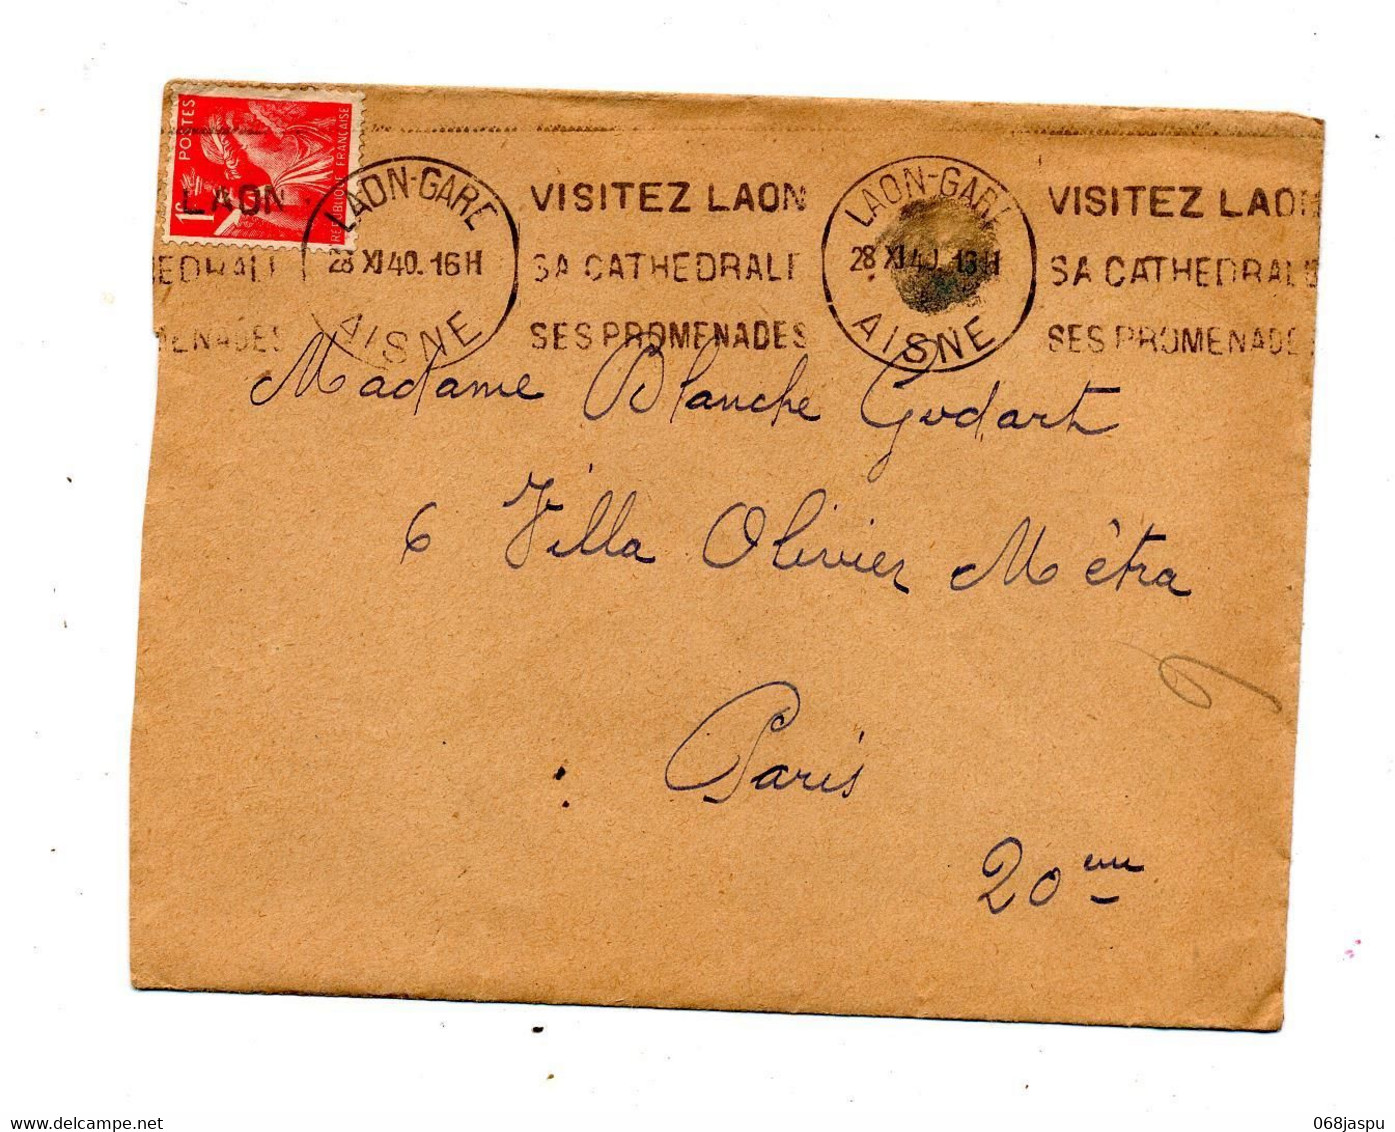 POSTES
1F
RÉPUBLIQUE FRANÇAISE
LAON
EDRALE
MENADES
LAON-GARE
28 XI 40. 16H
AISNE
VISITEZ LAON
SA CATHEDRALE
SES PROMENADES
LAON-GARE
28 XI 40. 16H
AISNE
VISITEZ LAON
SA CATHEDRALE
SES PROMENADE
Madame Blanche Godart
6 Villa Olivier Mètra
Paris
20eme
068jaspu